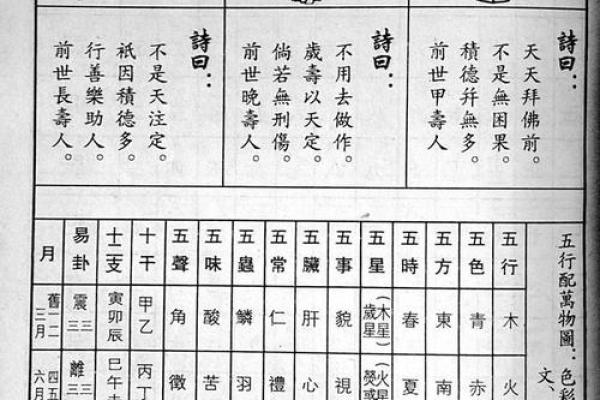 詩曰：
天天拜佛前。
不是無因果。
積德幷無多。
前世甲壽人
詩曰：
不用去做作。
歲壽以天定。
倘若無刑傷。
前世晚壽人。
詩曰：
不是天注定。
祇因積德多。
行善樂助人。
前世長壽人。
五行配萬物圖：色彩
文、
五行 木 火
五色 青 赤
五方 東 南
五時 春 夏
五星 (木星)歲星 (火星)熒惑
五事 貌 視
五臟 肝 心
五常 仁 禮
五蟲 鱗 羽
五味 酸 苦
五聲 角 徵
十干 甲乙 丙丁
十二支 寅卯辰 巳午
易卦 震 離
月 舊一二三月 四五六月